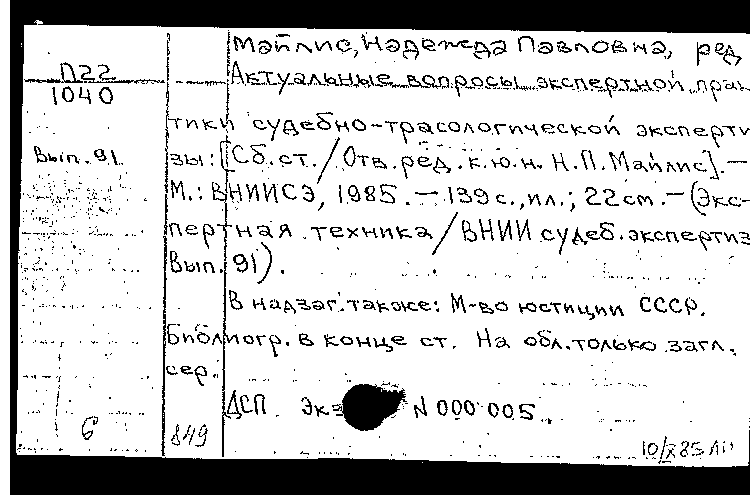 Майлис, Надежда Павловна, ред
П22
1040
Актуальные вопросы экспертной прак
тики судебно-трасологической эксперти
Вып. 91
зы: [Сб. ст. / Отв. ред. к.ю.н. Н.П. Майлис]. —
М.: ВНИИСЭ, 1985. — 139 с., ил.; 22 см. — (Экс-
пертная техника / ВНИИ судеб. экспертиз
Вып. 91).
В надзаг. также: М-во юстиции СССР.
Библиогр. в конце ст. На обл. только загл.
сер.
ДСП Экз N 000 005
6
849
10/X 85